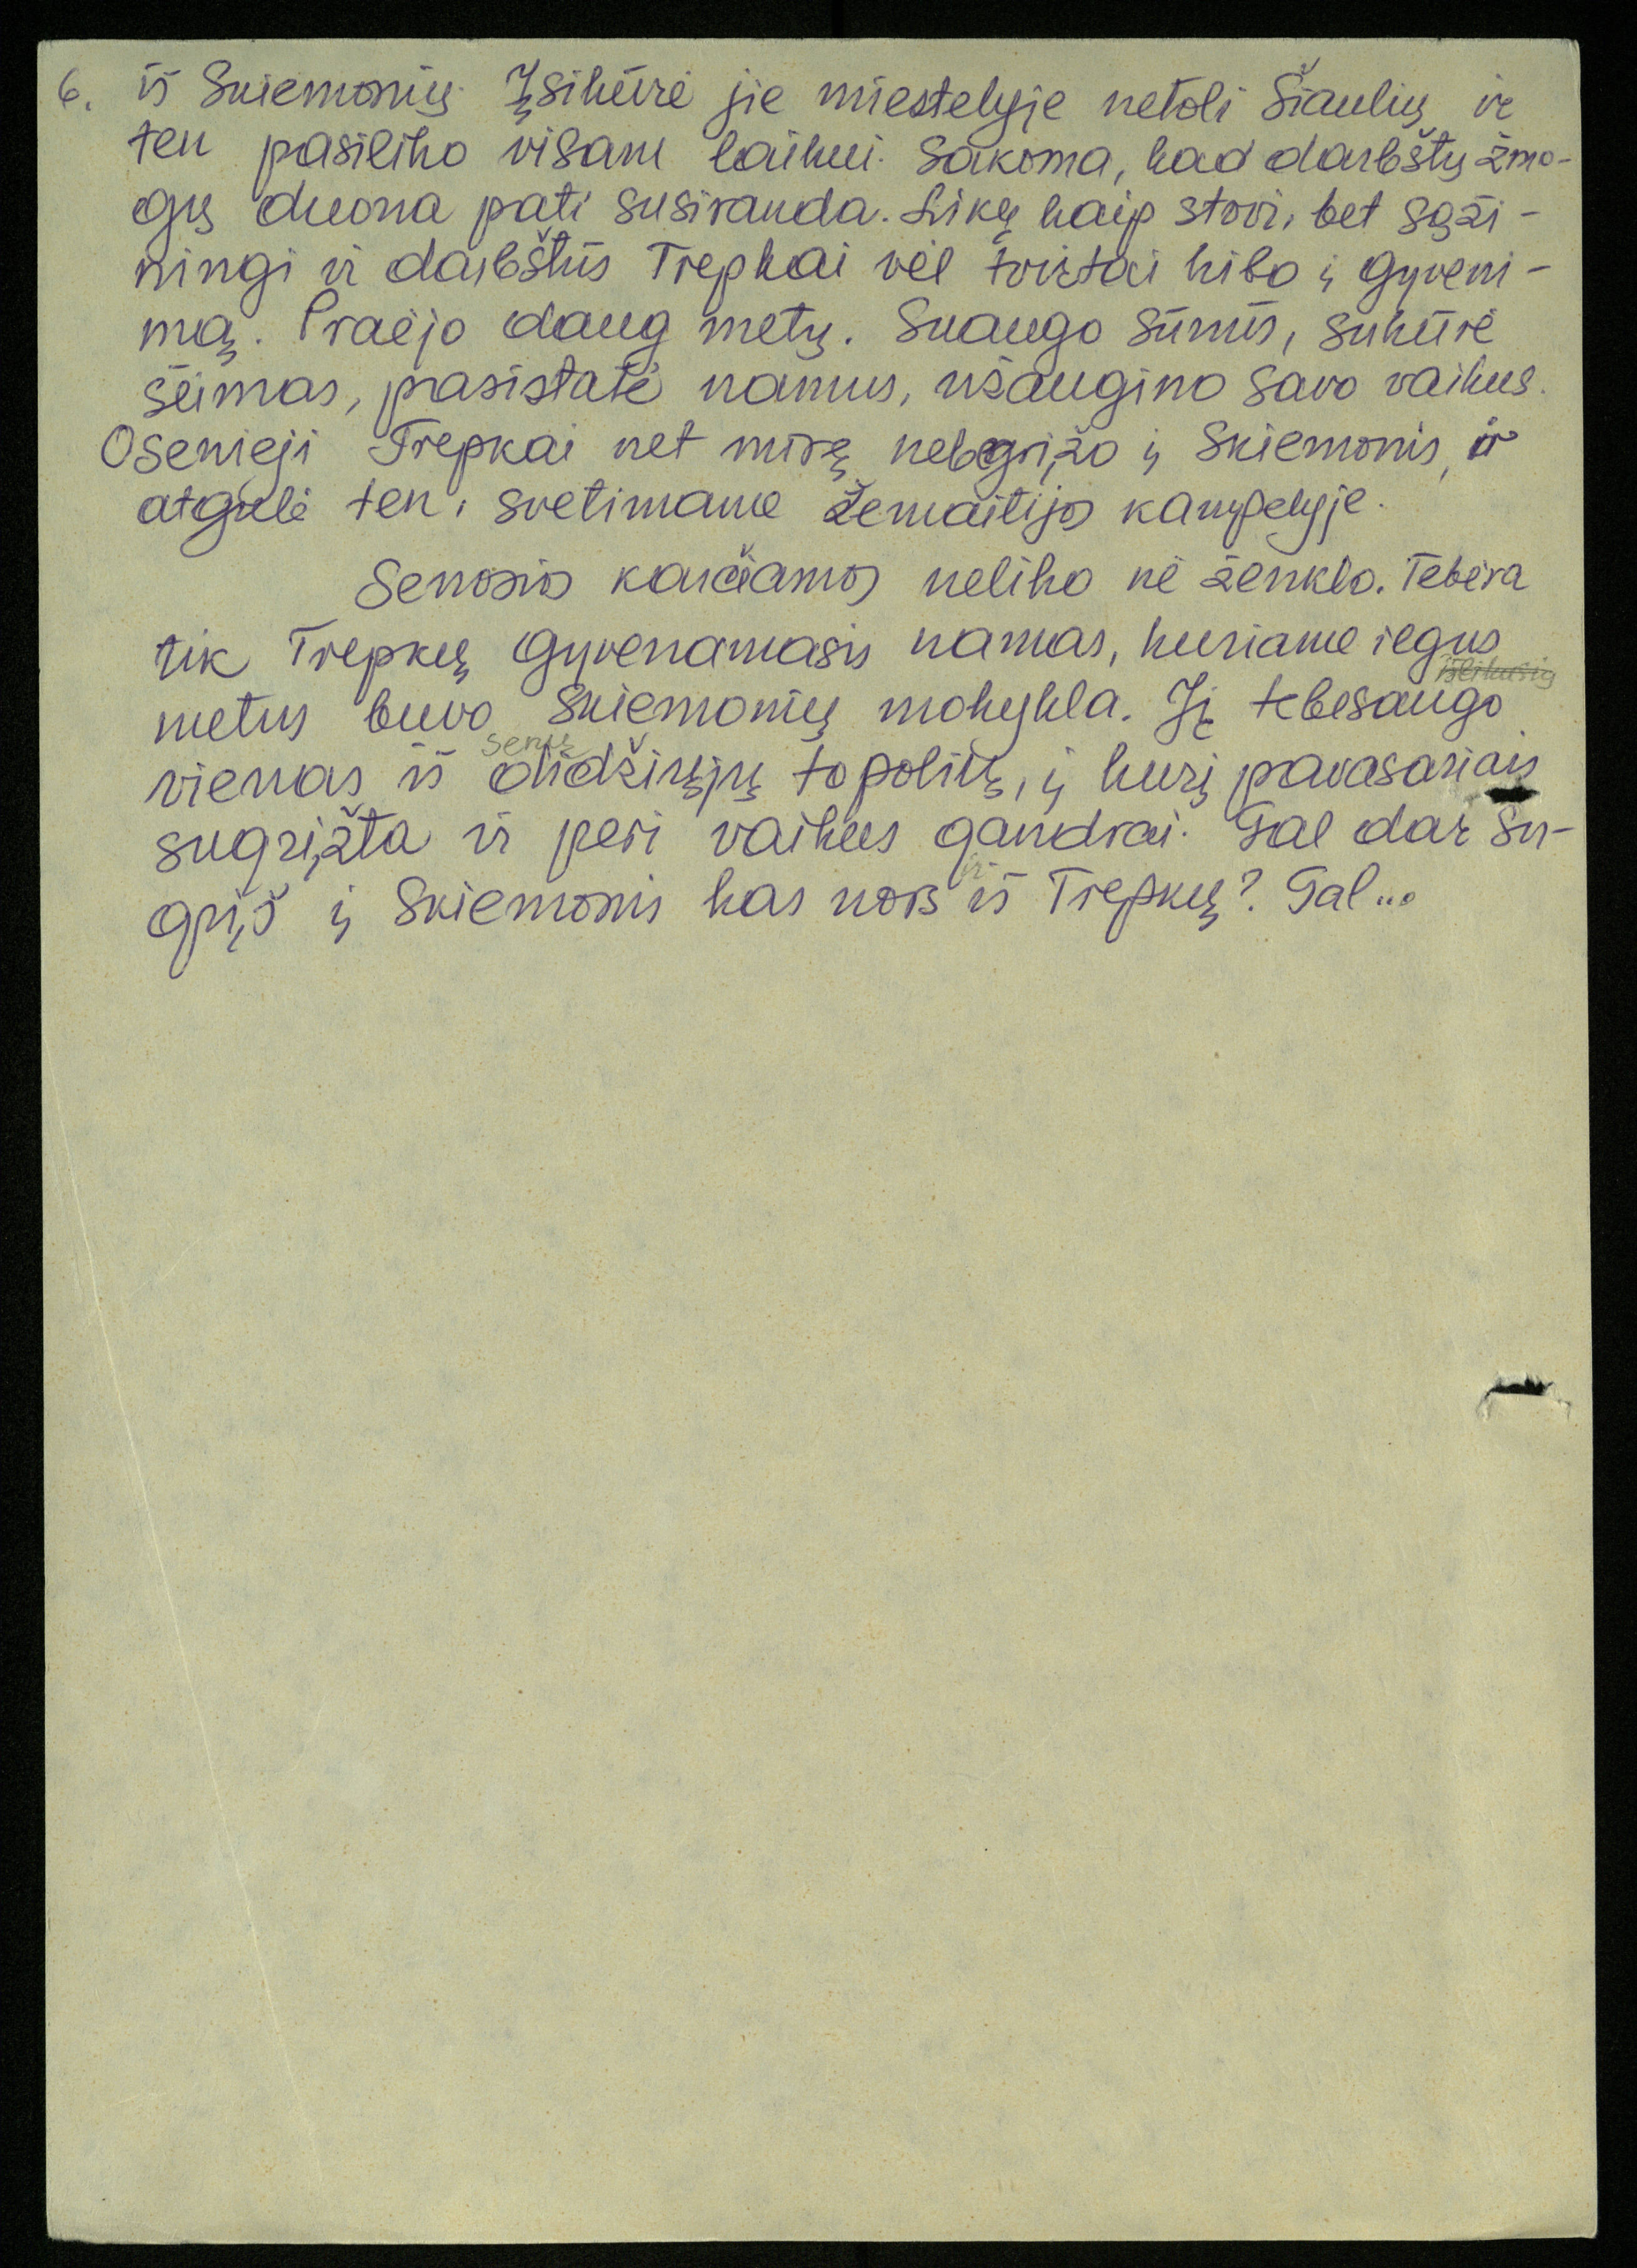 6. iš Skiemonių. Įsikūrė jie miestelyje netoli Šiaulių ir
ten pasiliko visam laikui. Sakoma, kad darbštų žmo-
gų duona pati susiranda. Likę kaip stovi, bet sąži-
ningi ir darbštūs Trepkai vėl tvirtai kibo į gyveni-
mą. Praėjo daug metų. Suaugo sūnūs, sukūrė
šeimas, pasistatė namus, užaugino savo vaikus.
O senieji Trepkai net mirę nebegrįžo į Skiemonis, ir
atgulė ten, svetimame Žemaitijos kampelyje.
Senosios karčiamos neliko nė ženklo. Tebėra
tik Trepkų gyvenamasis namas, kuriame ilgus
išlikusių
metus buvo Skiemonių mokykla. Jį tebesaugo
senų
vienas iš didžiųjų topolių, į kurį pavasariais
sugrįžta ir peri vaikus gandrai. Gal dar su-
ir
grįš į Skiemonis kas nors iš Trepkų? Gal...